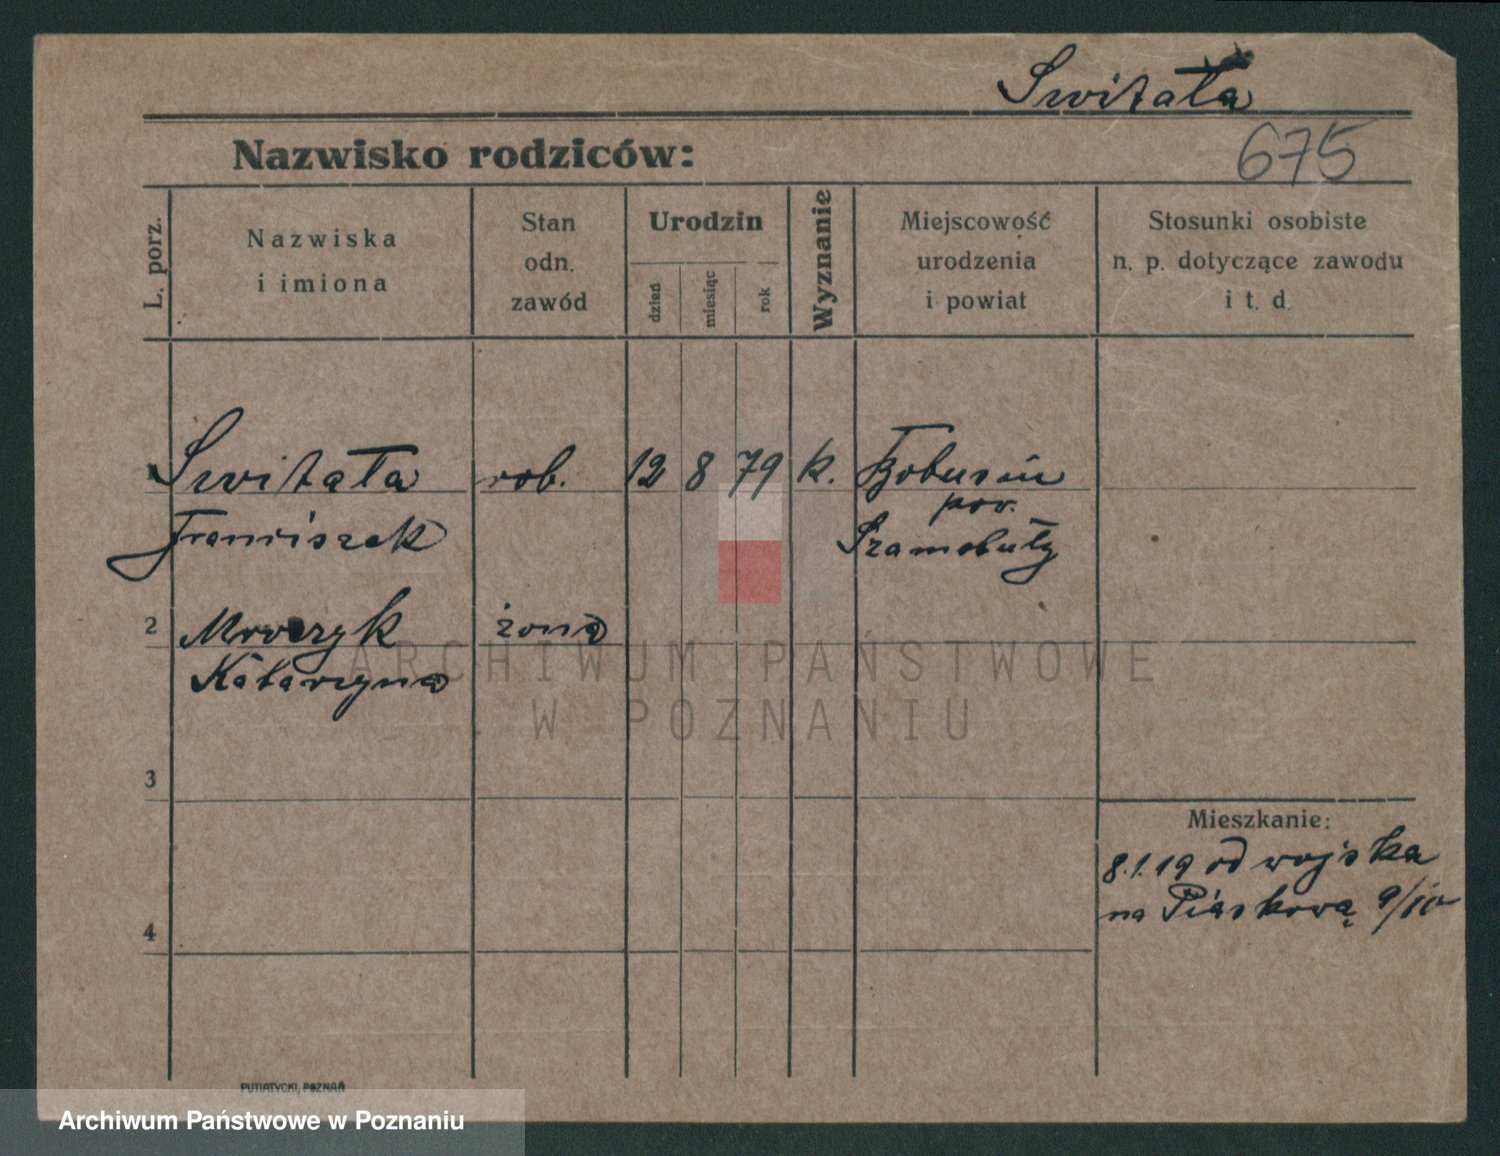 Switała
675
Nazwisko rodziców:
L. porz.
Nazwiska
i imiona
Stan
odn.
zawód
Urodzin
dzień
miesiąc
rok
Wyznanie
Miejscowość
urodzenia
i powiat
Stosunki osobiste
n. p. dotyczące zawodu
i t. d.
1 Switała rob. 12 8 79 k. Bobusin
pow.
Franciszek Szamotuły
2 Mroczyk żona
Katarzyna
ARCHIWUM PAŃSTWOWE
W POZNANIU
3
Mieszkanie:
8.1.19 od wojska
na Piaskową 9/10
4
PUTIATYCKI, POZNAŃ
Archiwum Państwowe w Poznaniu